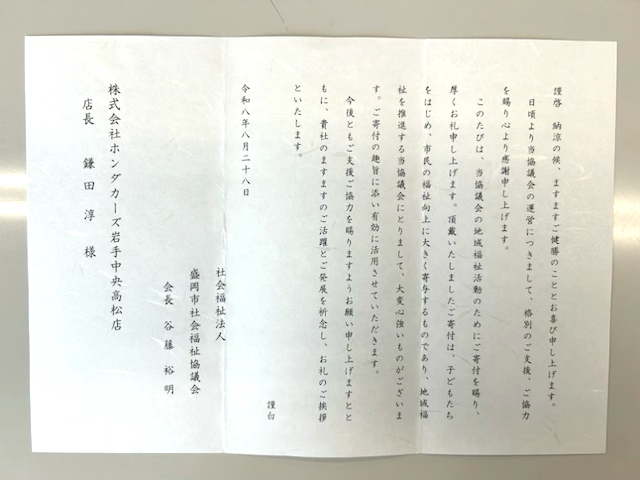 謹啓　納涼の候、ますますご健勝のこととお喜び申し上げます。
日頃より当協議会の運営につきまして、格別のご支援、ご協力
を賜り心より感謝申し上げます。
このたびは、当協議会の地域福祉活動のためにご寄付を賜り、
厚くお礼申し上げます。頂戴いたしましたご寄付は、子どもたち
をはじめ、市民の福祉向上に大きく寄与するものであり、地域福
祉を推進する当協議会にとりまして、大変心強いものがございま
す。ご寄付の趣旨に添い有効に活用させていただきます。
今後ともご支援ご協力を賜りますようお願い申し上げますとと
もに、貴社のますますのご活躍とご発展を祈念し、お礼のご挨拶
といたします。
謹白
令和八年八月二十八日
社会福祉法人
盛岡市社会福祉協議会
会長　谷藤裕明
株式会社ホンダカーズ岩手中央高松店
店長　鎌田淳様